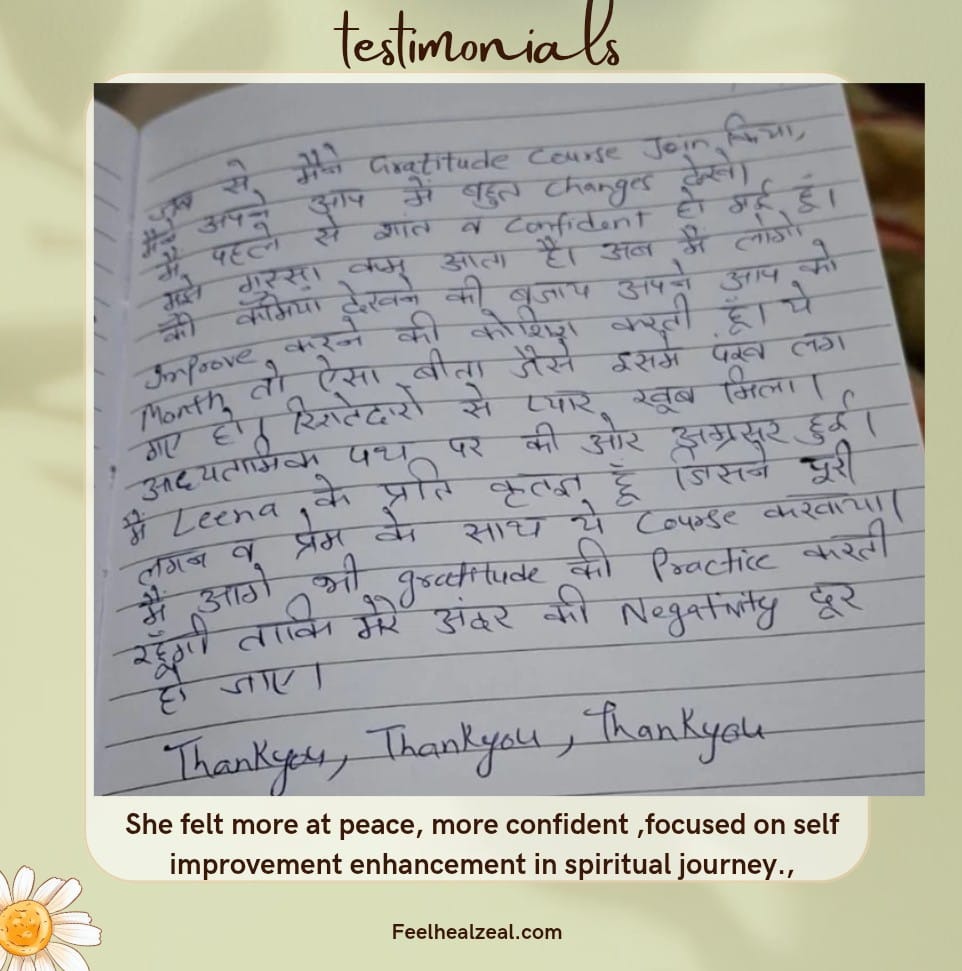 testimonials
जब से मैंने Gratitude Course Join किया,
मैंने अपने आप में बहुत Changes देखे।
मैं पहले से शांत व Confident हो गई हूं।
मुझे गुस्सा कम आता है। अब मैं लोगो
की कमियां देखने की बजाय अपने आप को
Improve करने की कोशिश करती हूँ। ये
Month तो ऐसा बीता जैसे इसमे पंख लग
गए हो। रिश्तेदारों से प्यार खूब मिला।
आध्यतामिक पथ पर की ओर अग्रसर हुई।
मैं Leena के प्रति कृतज्ञ हूँ जिसने पूरी
लगन व प्रेम के साथ ये Course करवाया।
मैं आगे भी gratitude की Practice करती
रहूँगी ताकि मेरे अंदर की Negativity दूर
हो जाए।
Thankyou, Thankyou, Thankyou
She felt more at peace, more confident ,focused on self
improvement enhancement in spiritual journey.,
Feelhealzeal.com